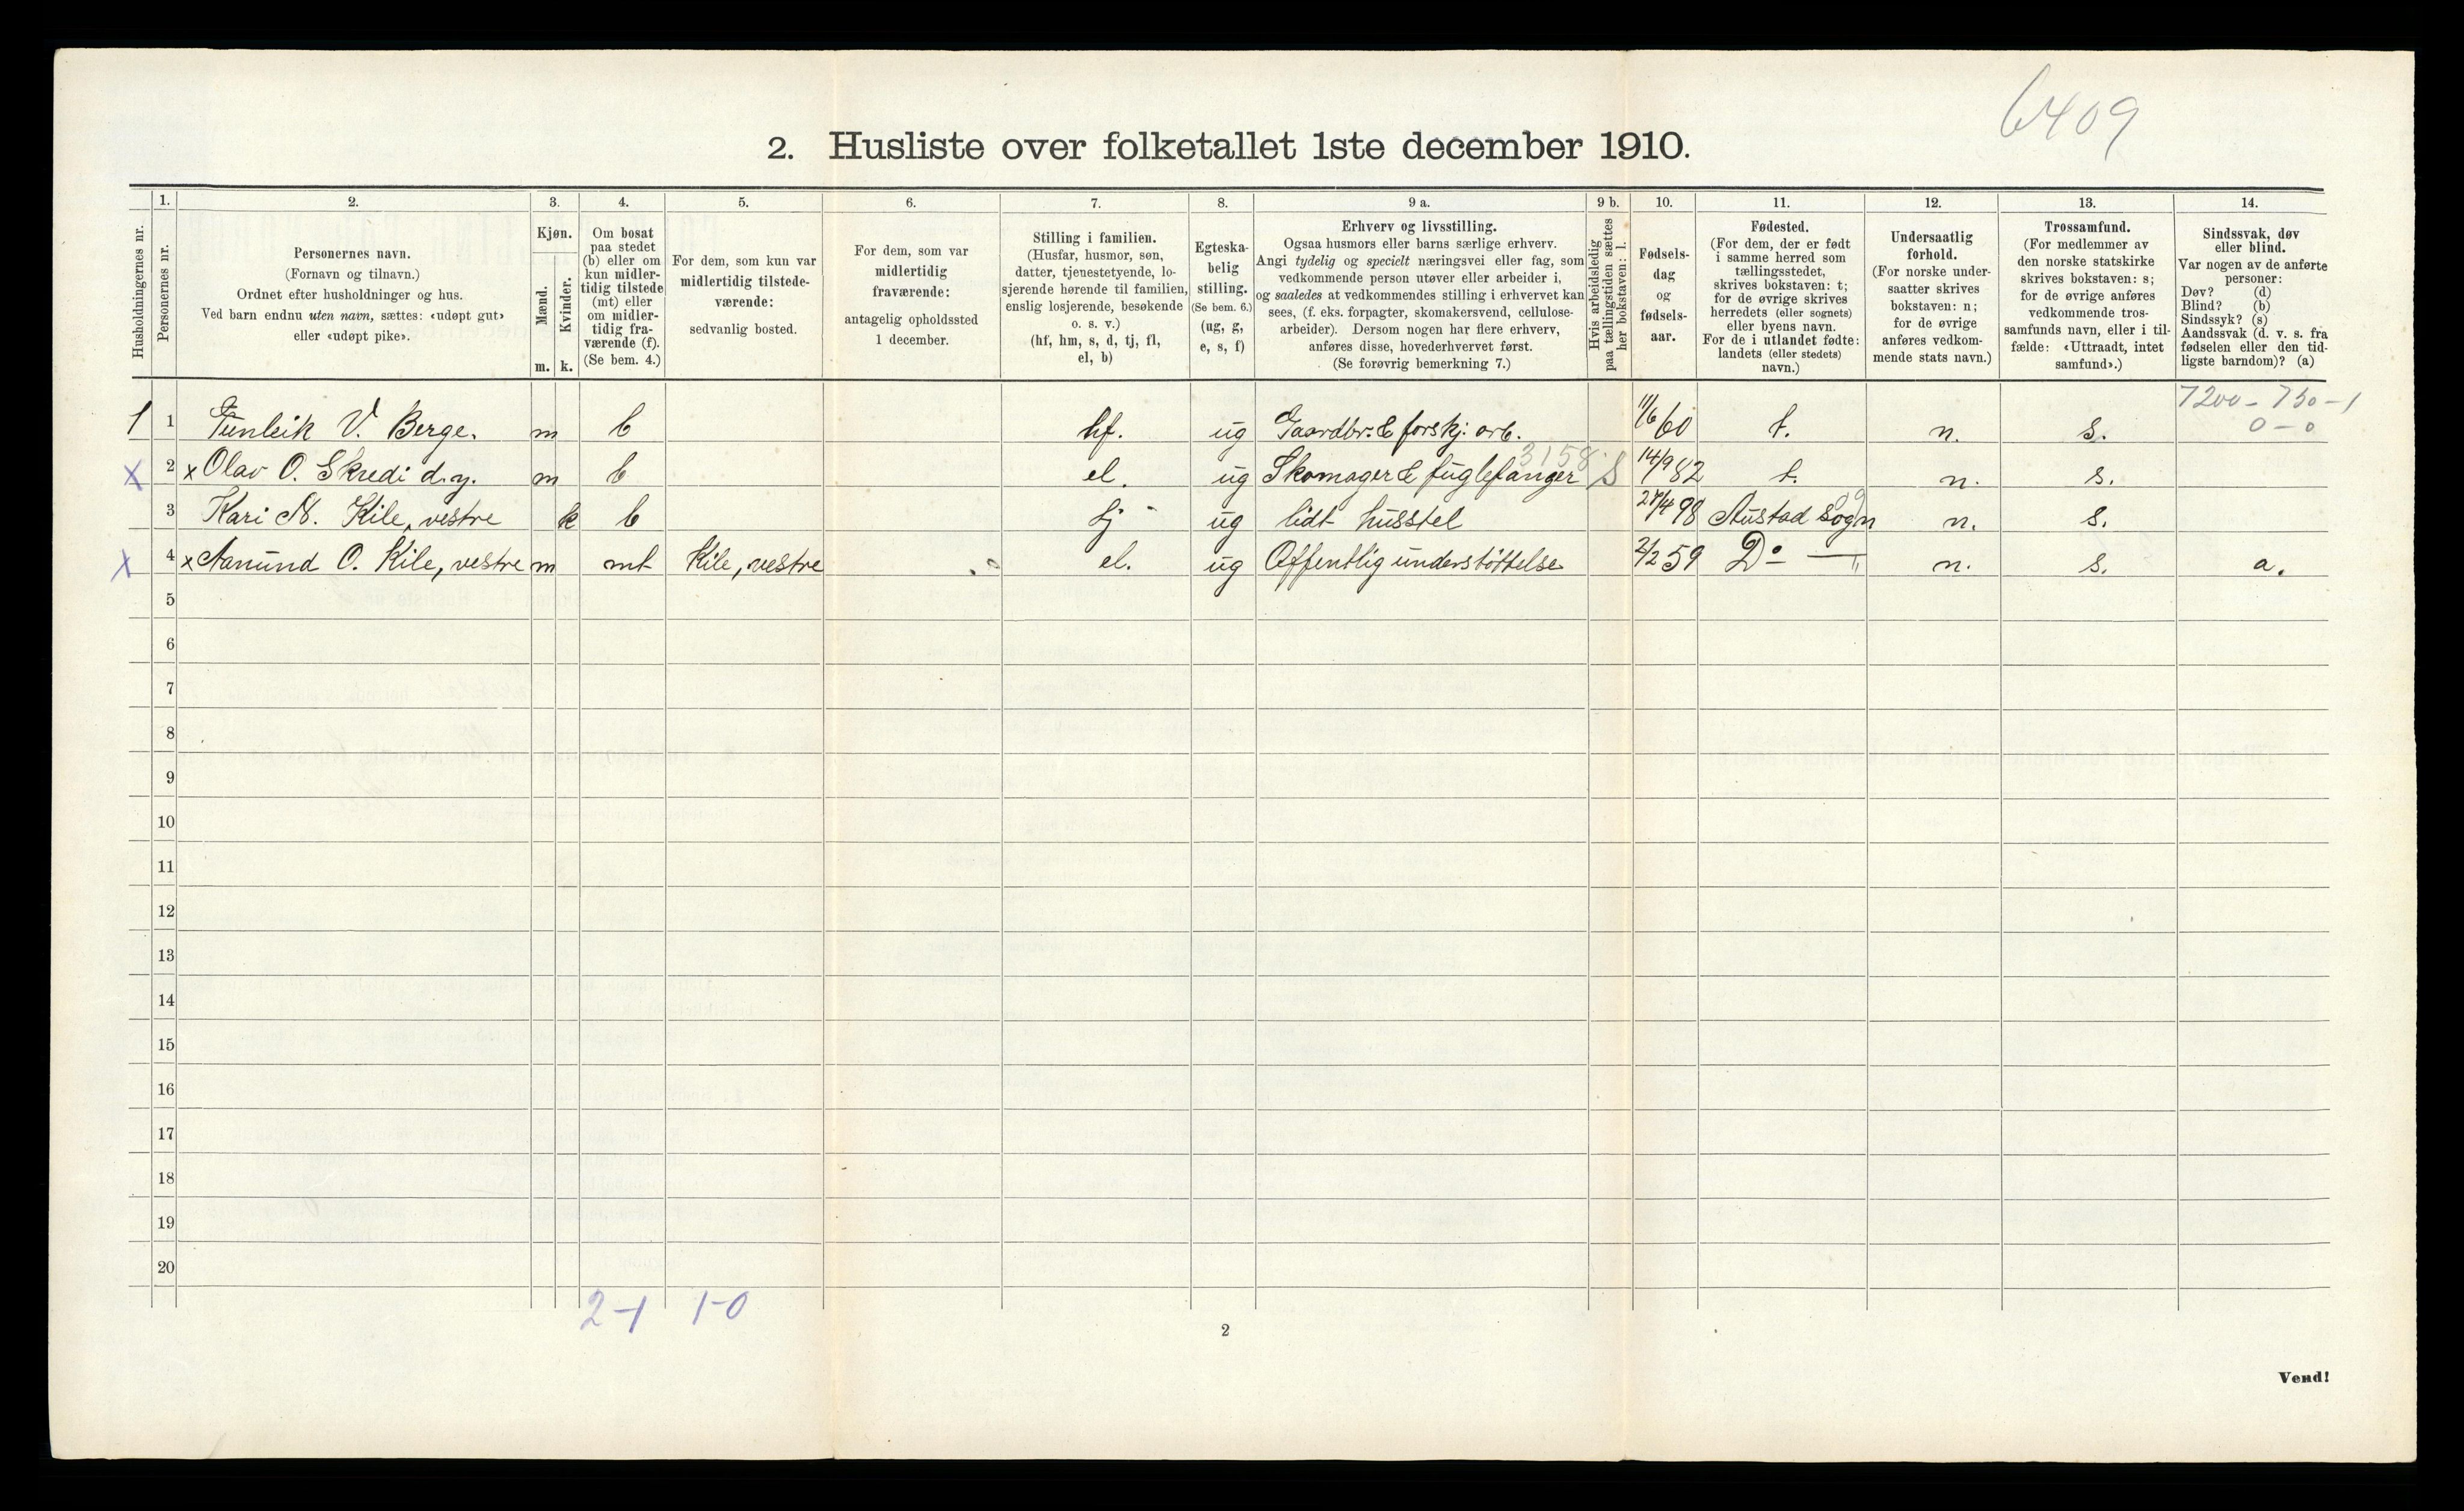 6409
2. Husliste over folketallet 1ste december 1910.
Husholdningernes nr.
1.
Personernes nr.
2.
Personernes navn.
(Fornavn og tilnavn.)
Ordnet efter husholdninger og hus.
Ved barn endnu uten navn, sættes: «udøpt gut»
eller «udøpt pike».
3.
Kjøn.
Mænd.
Kvinder.
m. k.
4.
Om bosat
paa stedet
(b) eller om
kun midler-
tidig tilstede
(mt) eller
om midler-
tidig fra-
værende (f).
(Se bem. 4.)
5.
For dem, som kun var
midlertidig tilstede-
værende:
sedvanlig bosted.
6.
For dem, som var
midlertidig
fraværende:
antagelig opholdssted
1 december.
7.
Stilling i familien.
(Husfar, husmor, søn,
datter, tjenestetyende, lo-
sjerende hørende til familien,
enslig losjerende, besøkende
o. s. v.)
(hf, hm, s, d, tj, fl,
el, b)
8.
Egteska-
belig
stilling.
(Se bem. 6.)
(ug, g,
e, s, f)
9 a.
Erhverv og livsstilling.
Ogsaa husmors eller barns særlige erhverv.
Angi tydelig og specielt næringsvei eller fag, som
vedkommende person utøver eller arbeider i,
og saaledes at vedkommendes stilling i erhvervet kan
sees, (f. eks. forpagter, skomakersvend, cellulose-
arbeider). Dersom nogen har flere erhverv,
anføres disse, hovederhvervet først.
(Se forøvrig bemerkning 7.)
9 b.
Hvis arbeidsledig
paa tællingstiden sættes
her bokstaven: l.
10.
Fødsels-
dag
og
fødsels-
aar.
11.
Fødested.
(For dem, der er født
i samme herred som
tællingsstedet,
skrives bokstaven: t;
for de øvrige skrives
herredets (eller sognets)
eller byens navn.
For de i utlandet fødte:
landets (eller stedets)
navn.)
12.
Undersaatlig
forhold.
(For norske under-
saatter skrives
bokstaven: n;
for de øvrige
anføres vedkom-
mende stats navn.)
13.
Trossamfund.
(For medlemmer av
den norske statskirke
skrives bokstaven: s;
for de øvrige anføres
vedkommende tros-
samfunds navn, eller i til-
fælde: «Uttraadt, intet
samfund».)
14.
Sindssvak, døv
eller blind.
Var nogen av de anførte
personer:
Døv? (d)
Blind? (b)
Sindssyk? (s)
Aandssvak (d. v. s. fra
fødselen eller den tid-
ligste barndom)? (a)
7200 - 750 - 1
0 - 0
1 1 Gunleik V. Berge. m b hf. ug Gaardbr. & forskj. arb. 11/6 60 t. n. s.
3158
x 2 x Olav O. Skredi d.y. m b el. ug Skomager & fuglefanger S 14/9 82 t. n. s.
09
3 Kari N. Kile, vestre k b tj ug lidt husstel 27/4 98 Austad sogn n. s.
x 4 x Aanund O. Kile, vestre m mt Kile, vestre el. ug Offentlig understöttelse 2/2 59 Do — " n. s. a.
5
6
7
8
9
10
11
12
13
14
15
16
17
18
19
20
2-1 1-0
2
Vend!